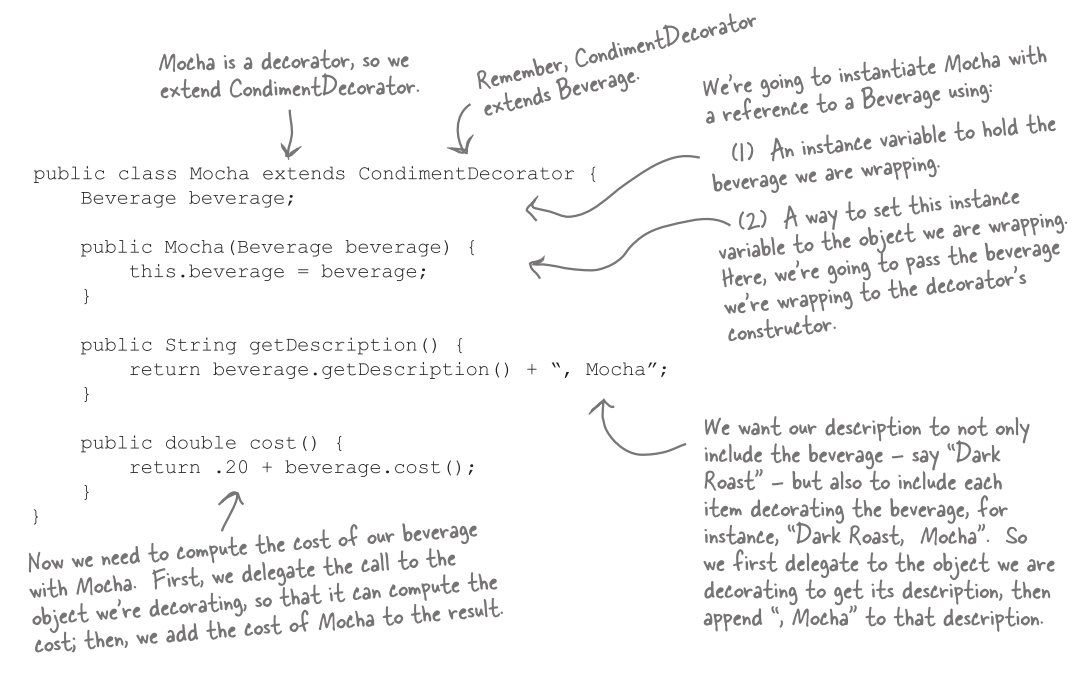 Mocha is a decorator, so we
extend CondimentDecorator.
Remember, CondimentDecorator
extends Beverage.
We're going to instantiate Mocha with
a reference to a Beverage using:
(1) An instance variable to hold the
beverage we are wrapping.
(2) A way to set this instance
variable to the object we are wrapping.
Here, we're going to pass the beverage
we're wrapping to the decorator's
constructor.
public class Mocha extends CondimentDecorator {
Beverage beverage;
public Mocha(Beverage beverage) {
this.beverage = beverage;
}
public String getDescription() {
return beverage.getDescription() + “, Mocha”;
}
public double cost() {
return .20 + beverage.cost();
}
}
We want our description to not only
include the beverage – say “Dark
Roast” – but also to include each
item decorating the beverage, for
instance, “Dark Roast, Mocha”. So
we first delegate to the object we are
decorating to get its description, then
append “, Mocha” to that description.
Now we need to compute the cost of our beverage
with Mocha. First, we delegate the call to the
object we're decorating, so that it can compute the
cost; then, we add the cost of Mocha to the result.